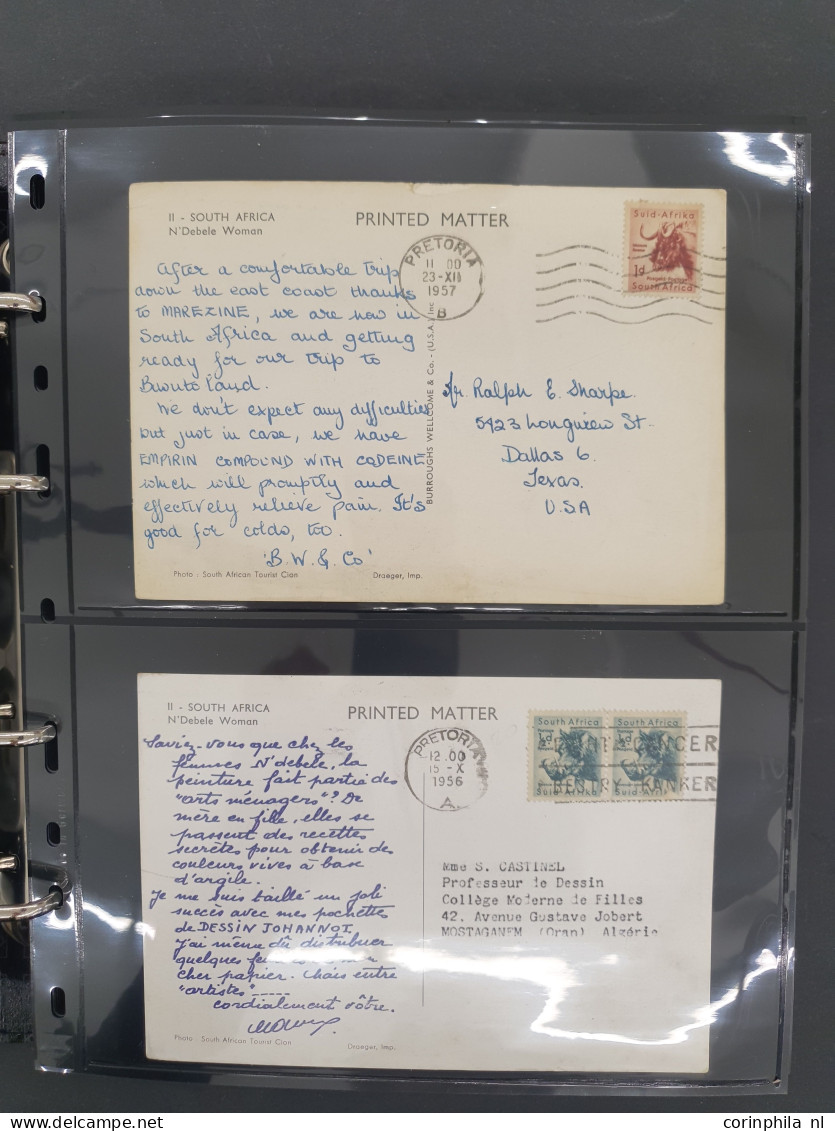 II - SOUTH AFRICA
N'Debele Woman
PRINTED MATTER
PRETORIA
11 00
23-XII
1957
B
Suid-Afrika
1d
South Africa
After a comfortable trip
down the east coast thanks
to MAREZINE, we are now in
South Africa and getting
ready for our trip to
We don't expect any difficulties
but just in case, we have
EMPIRIN COMPOUND WITH CODEINE
which will promptly and
effectively relieve pain. It's
good for colds, too.
'B.W. & Co'
BURROUGHS WELLCOME & Co. - (U.S.A.) Inc
Mr. Ralph E. Sharpe
5423 Longview St.
Dallas 6.
Texas.
U.S.A
Photo : South African Tourist Cion
Draeger, Imp.
II - SOUTH AFRICA
N'Debele Woman
PRINTED MATTER
PRETORIA
12.00
15-X
1956
A
South Africa
South Africa
Suid-Afrika
Suid-Afrika
KANKER
Saviez-vous que chez les
femmes N'debele, la
peinture fait partie des
"arts ménagers"? De
mère en fille, elles se
passent des recettes
secrètes pour obtenir des
couleurs vives à base
d'argile.
Je me suis taillé un joli
succès avec mes pochettes
de DESSIN JOHANNOT
j'ai même dû distribuer
quelques
cher papier. Mais entre
"artistes" -----
cordialement vôtre.
Mme S. CASTINEL
Professeur de Dessin
Collège Moderne de Filles
42, Avenue Gustave Jobert
MOSTAGANEM (Oran) Algérie
Photo : South African Tourist Cion
Draeger, Imp.
www.corinphila.nl